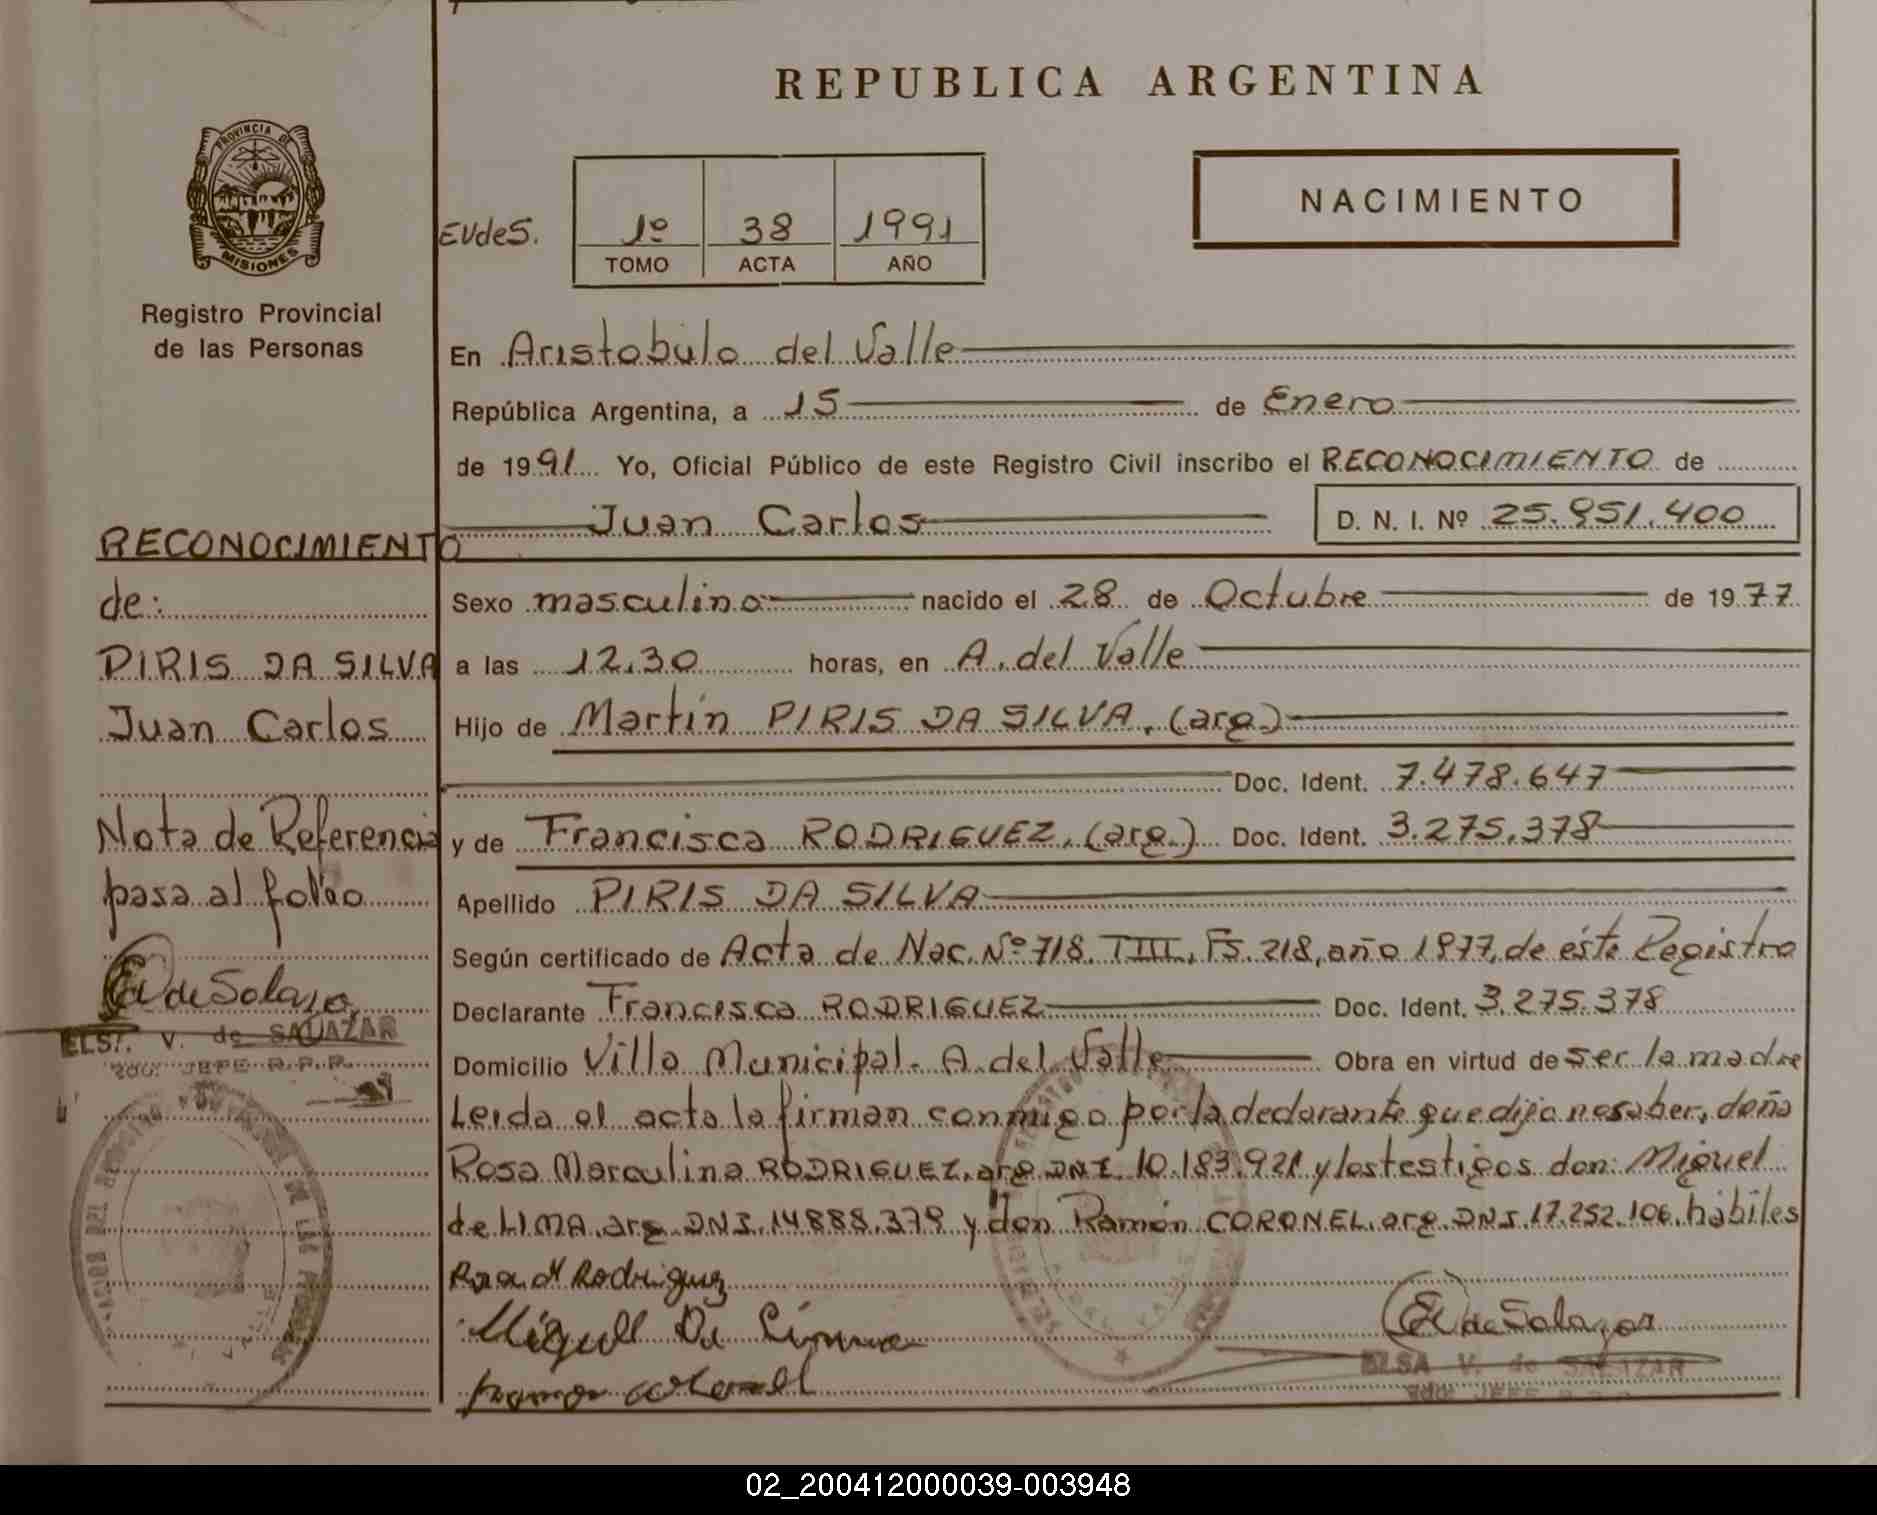 REPUBLICA ARGENTINA
PROVINCIA DE
MISIONES
Registro Provincial
de las Personas
NACIMIENTO
EVdeS.
1º 38 1991
TOMO ACTA AÑO
En Aristobulo del Valle
República Argentina, a 15 de Enero
de 1991 Yo, Oficial Público de este Registro Civil inscribo el RECONOCIMIENTO de
Juan Carlos D. N. I. Nº 25.951.400
Sexo masculino nacido el 28 de Octubre de 1977
a las 12.30 horas, en A. del Valle
Hijo de Martín PIRIS DA SILVA, (arg)
Doc. Ident. 7.478.647
y de Francisca RODRIGUEZ, (arg.) Doc. Ident. 3.275.378
Apellido PIRIS DA SILVA
Según certificado de Acta de Nac. Nº 718, TIII, Fs. 218, año 1977, de éste Registro
Declarante Francisca RODRIGUEZ Doc. Ident. 3.275.378
Domicilio Villa Municipal - A. del Valle Obra en virtud de ser la madre
Leida el acta la firman conmigo por la declarante que dijo no saber, doña
Rosa Marculina RODRIGUEZ, arg DNI 10.183.921 y los testigos don: Miguel
de LIMA, arg DNI. 14.888.379 y don Ramón CORONEL, arg. DNI. 17.252.106, hábiles
Rosa M Rodriguez
Miguel De Lima
Ramon Coronel
EVdeSalazar
ELSA V. de SALAZAR
RECONOCIMIENTO
de:
PIRIS DA SILVA
Juan Carlos
Nota de Referencia
pasa al folio
EVdeSalazar
ELSA V. de SALAZAR
JEFE R.P.P.
02_200412000039-003948